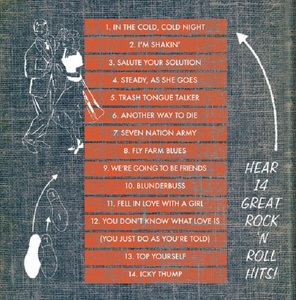 1. IN THE COLD, COLD NIGHT
2. I'M SHAKIN'
3. SALUTE YOUR SOLUTION
4. STEADY, AS SHE GOES
5. TRASH TONGUE TALKER
6. ANOTHER WAY TO DIE
7. SEVEN NATION ARMY
8. FLY FARM BLUES
9. WE'RE GOING TO BE FRIENDS
10. BLUNDERBUSS
11. FELL IN LOVE WITH A GIRL
12. YOU DON'T KNOW WHAT LOVE IS
(YOU JUST DO AS YOU'RE TOLD)
13. TOP YOURSELF
14. ICKY THUMP
HEAR
14
GREAT
ROCK
'N
ROLL
HITS!